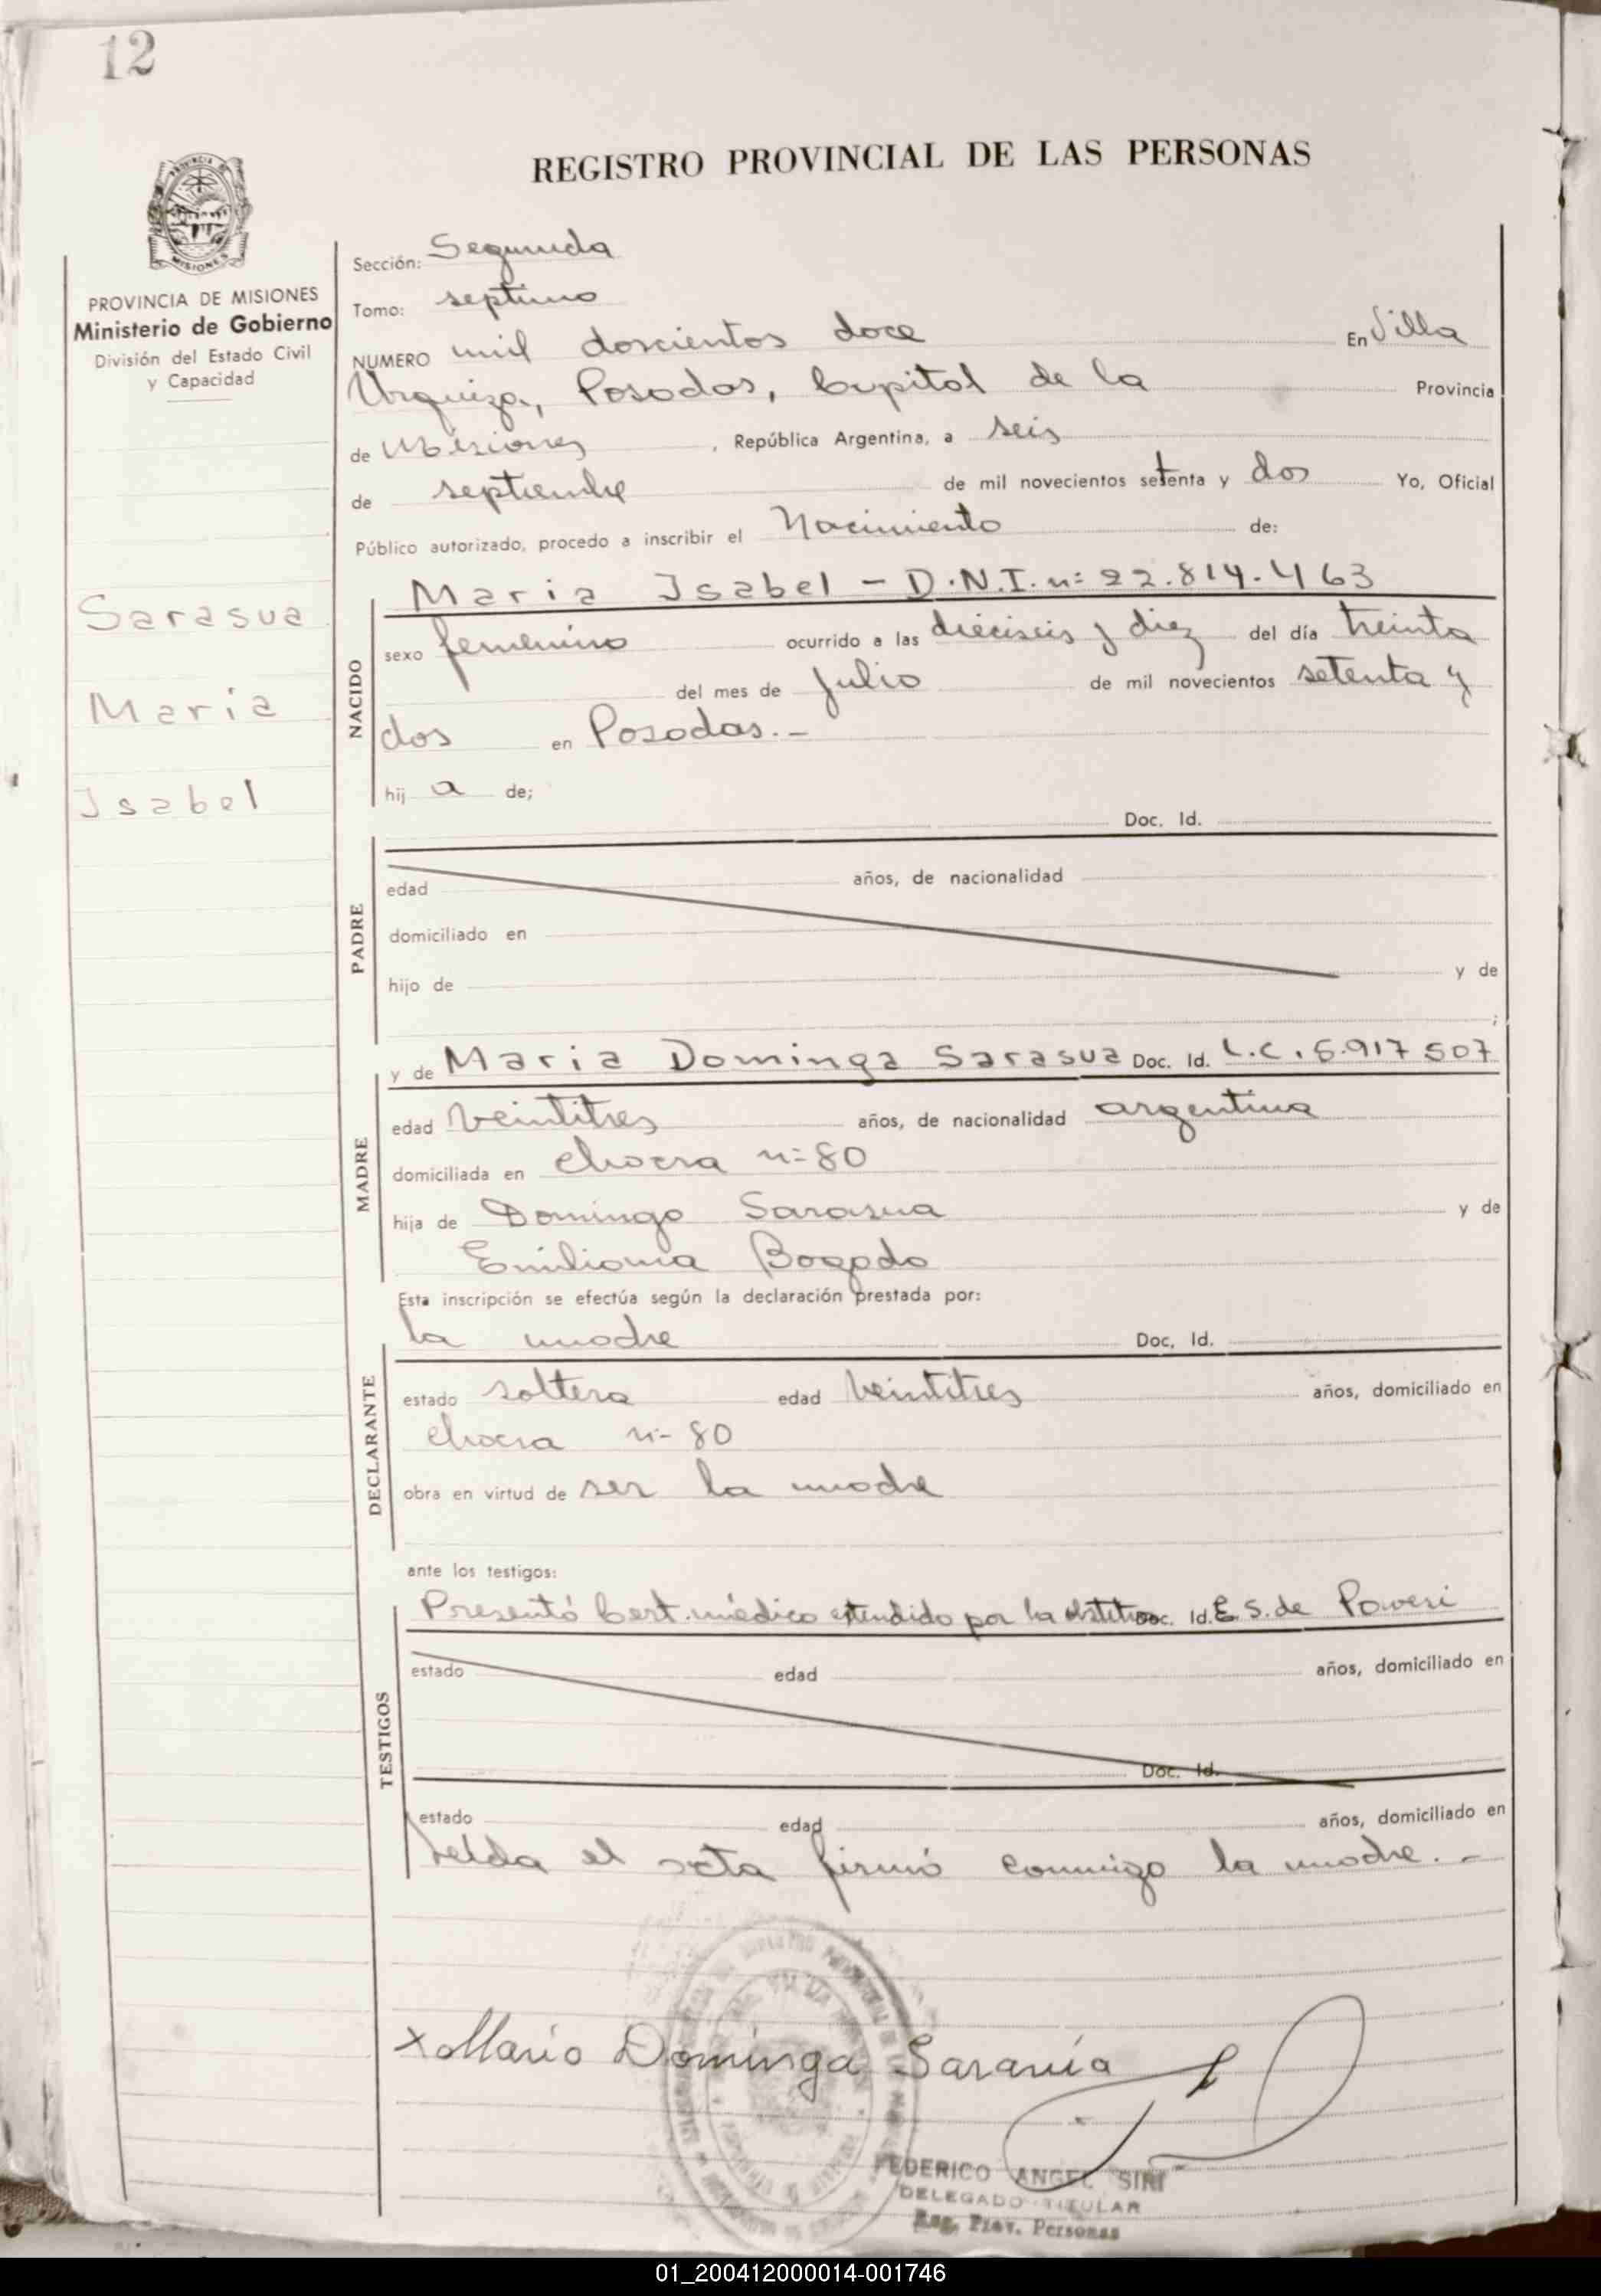 12
REGISTRO PROVINCIAL DE LAS PERSONAS
MISIONES
PROVINCIA DE MISIONES
Ministerio de Gobierno
División del Estado Civil
y Capacidad
Sarasua
Maria
Isabel
Sección: Segunda
Tomo: septimo
NUMERO mil doscientos doce En Villa
Urquiza, Posadas, Capital de la Provincia
de Misiones, República Argentina, a seis
de septiembre de mil novecientos setenta y dos Yo, Oficial
Público autorizado, procedo a inscribir el Nacimiento de:
NACIDO
Maria Isabel - D.N.I. n= 22.814.463
sexo femenino ocurrido a las dieciseis y diez del día treinta
del mes de Julio de mil novecientos setenta y
dos en Posadas.-
hij a de;
PADRE
Doc. Id.
edad años, de nacionalidad
domiciliado en
hijo de y de
;
MADRE
y de Maria Dominga Sarasua Doc. Id. L.C. 5.917507
edad veintitres años, de nacionalidad argentina
domiciliada en chacra n=80
hija de Domingo Sarasua y de
Emiliana Bogado
Esta inscripción se efectúa según la declaración prestada por:
DECLARANTE
la madre Doc, Id.
estado soltera edad veintitres años, domiciliado en
chacra n- 80
obra en virtud de ser la madre
ante los testigos:
TESTIGOS
Presentó Cert. médico extendido por la obstetra Doc. Id. E. S. de
estado edad años, domiciliado en
Doc. Id.
estado edad años, domiciliado en
Leida el acta firmó conmigo la madre.-
x Mario Dominga Sarasúa
FEDERICO ANGEL SIRI
DELEGADO TITULAR
Reg. Prov. Personas
01_200412000014-001746